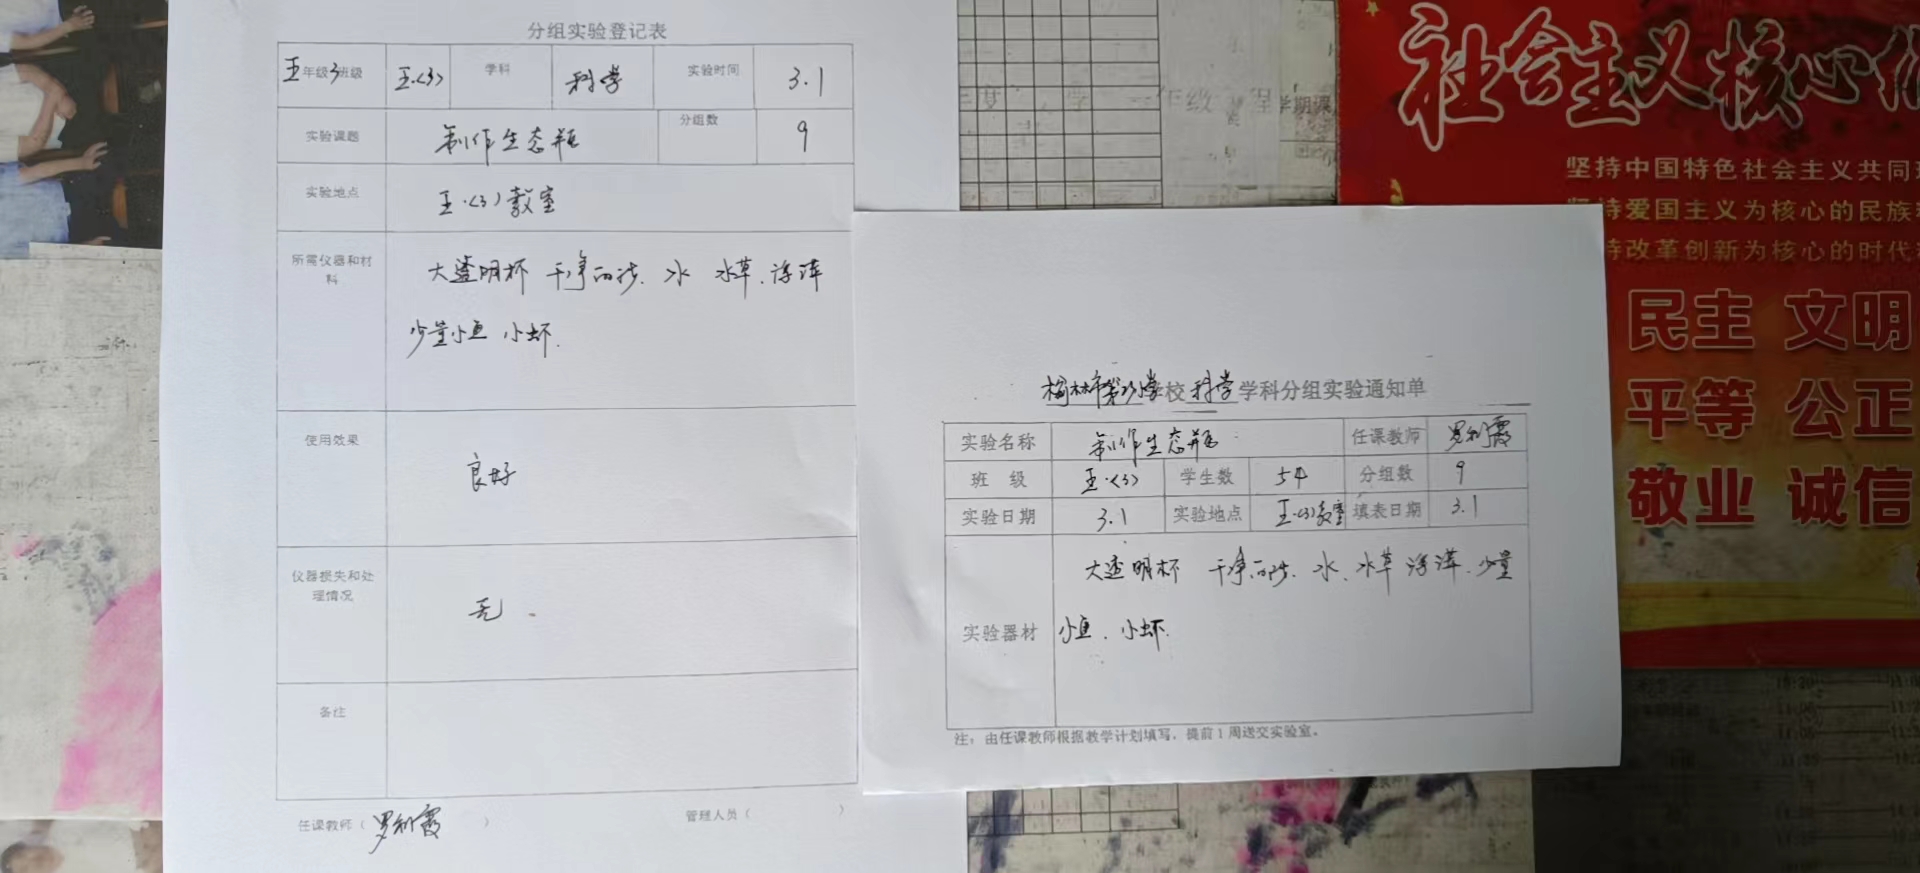 分组实验登记表
五年级3班级 五.(3) 学科 科学 实验时间 3.1
实验课题 制作生态瓶 分组数 9
实验地点 五.(3)教室
所需仪器和材料 大透明杯 干净的沙、水 水草、浮萍
少量小鱼 小虾.
使用效果 良好
仪器损失和处理情况 无
备注
任课教师（罗利霞） 管理人员（ ）
榆林市第 小学校 科学 学科分组实验通知单
实验名称 制作生态瓶 任课教师 罗利霞
班 级 五.(3) 学生数 54 分组数 9
实验日期 3.1 实验地点 五.(3)教室 填表日期 3.1
实验器材 大透明杯 干净的沙、水、水草 浮萍、少量
小鱼、小虾.
注：由任课教师根据教学计划填写，提前1周送交实验室。
社会主义核心
坚持中国特色社会主义共同
坚持爱国主义为核心的民族
持改革创新为核心的时代
民主 文明
平等 公正
敬业 诚信